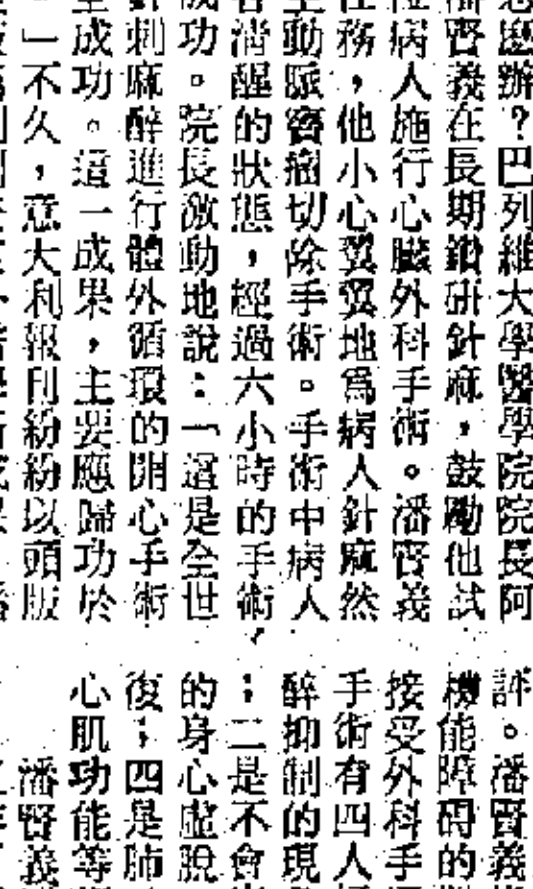 麼辦?巴列維大學醫學院院長阿
潘賢義在長期鑽研針麻,鼓勵他試
病人施行心臟外科手術。潘賢義
任務,他小心翼翼地為病人針麻然
主動脈竇瘤切除手術。手術中病人
清醒的狀態,經過六小時的手術,
成功。院長激動地說:「這是全世
針刺麻醉進行體外循環的開心手術
全成功。這一成果,主要應歸功於
」不久,意大利報刊紛紛以頭版
評。潘賢義
機能障碍的
接受外科手
手術有四人
醉抑制的現
;二是不會
的身心虛脫
復;四是肺
心肌功能等
潘賢義